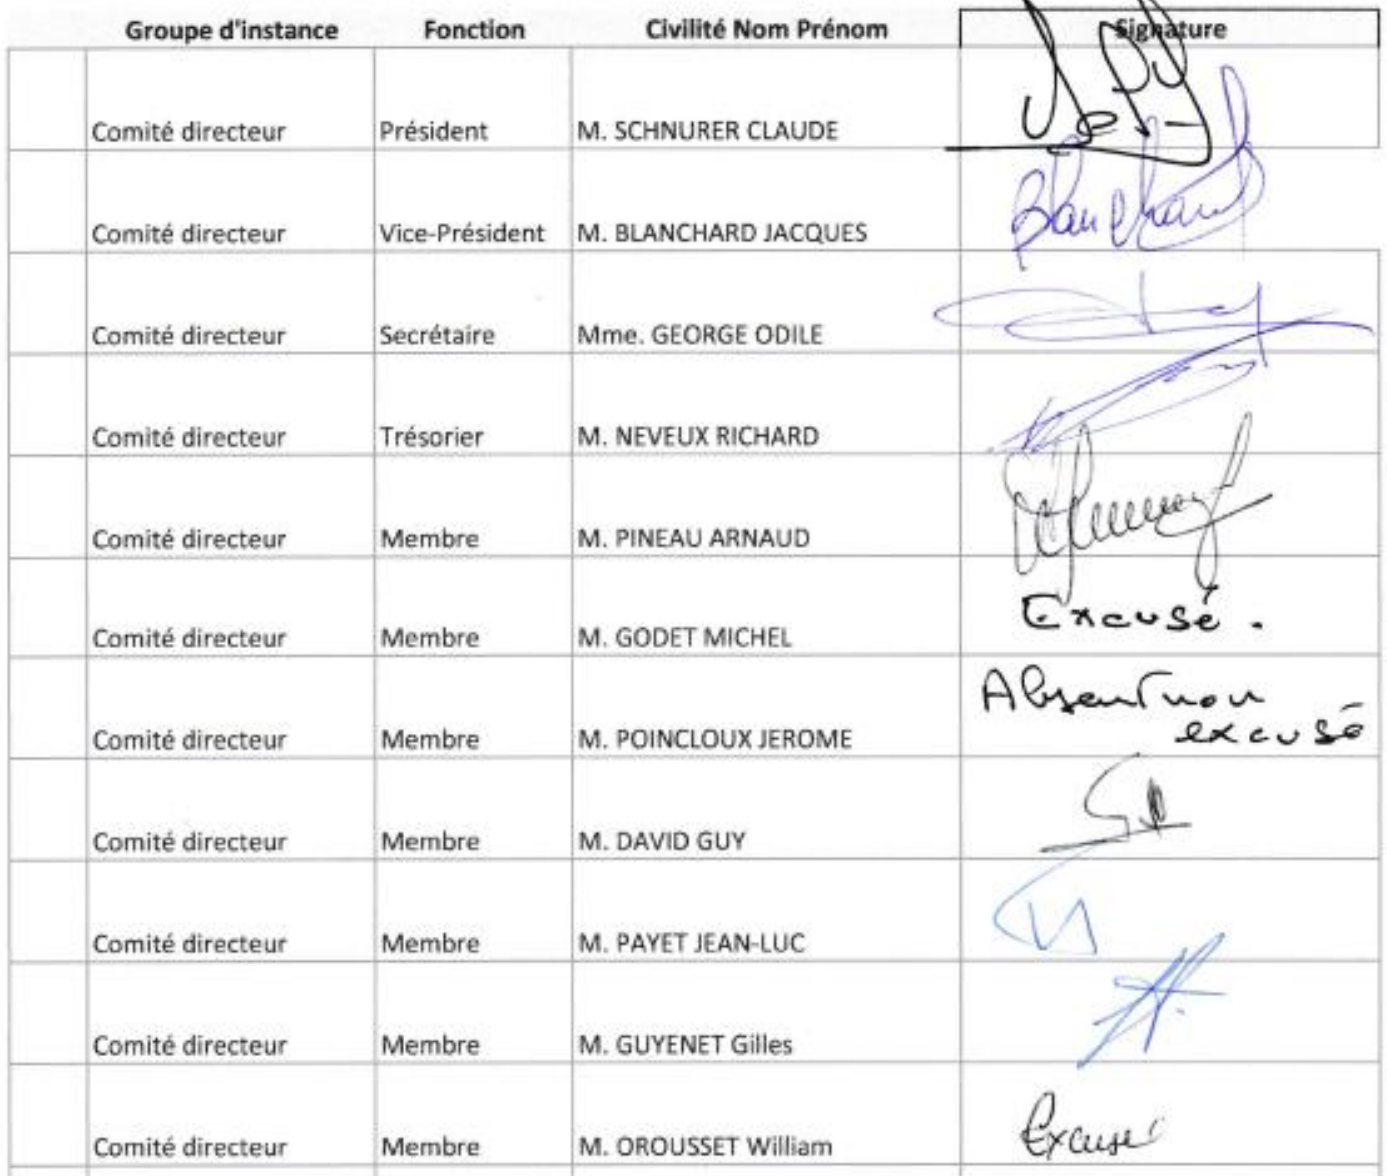 Groupe d'instance Fonction Civilité Nom Prénom Signature
Comité directeur Président M. SCHNURER CLAUDE
Comité directeur Vice-Président M. BLANCHARD JACQUES Blanchard
Comité directeur Secrétaire Mme. GEORGE ODILE
Comité directeur Trésorier M. NEVEUX RICHARD
Comité directeur Membre M. PINEAU ARNAUD
Comité directeur Membre M. GODET MICHEL Excusé.
Absent non
Comité directeur Membre M. POINCLOUX JEROME excusé
Comité directeur Membre M. DAVID GUY
Comité directeur Membre M. PAYET JEAN-LUC
Comité directeur Membre M. GUYENET Gilles
Comité directeur Membre M. OROUSSET William Excusé